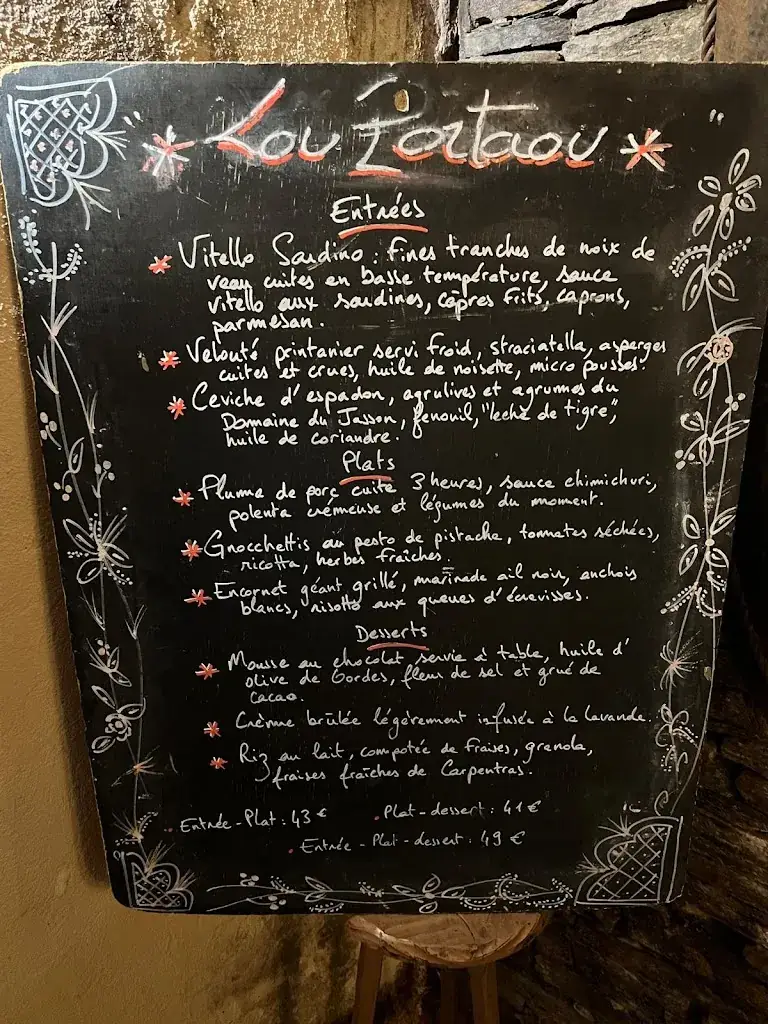 Lou Portaou
Entrées
Vitello Sardino : fines tranches de noix de
veau cuites en basse température, sauce
vitello aux sardines, câpres frits, caprons,
parmesan.
Velouté printanier servi froid, straciatella, asperges
cuites et crues, huile de noisette, micro pousses.
Ceviche d'espadon, agrulives et agrumes du
Domaine du Jasson, fenouil, "leche de tigre",
huile de coriandre.
Plats
Pluma de porc cuite 3 heures, sauce chimichuri,
polenta crémeuse et légumes du moment.
Gnocchettis au pesto de pistache, tomates séchées,
ricotta, herbes fraîches.
Encornet géant grillé, marinade ail noir, anchois
blancs, risotto aux queues d'écrevisses.
Desserts
Mousse au chocolat servie à table, huile d'
olive de Gordes, fleur de sel et grué de
cacao.
Crème brûlée légèrement infusée à la lavande.
Riz au lait, compotée de fraises, granola,
fraises fraîches de Carpentras.
Entrée - Plat : 43 € . Plat - dessert : 41 €
. Entrée - Plat - dessert : 49 €